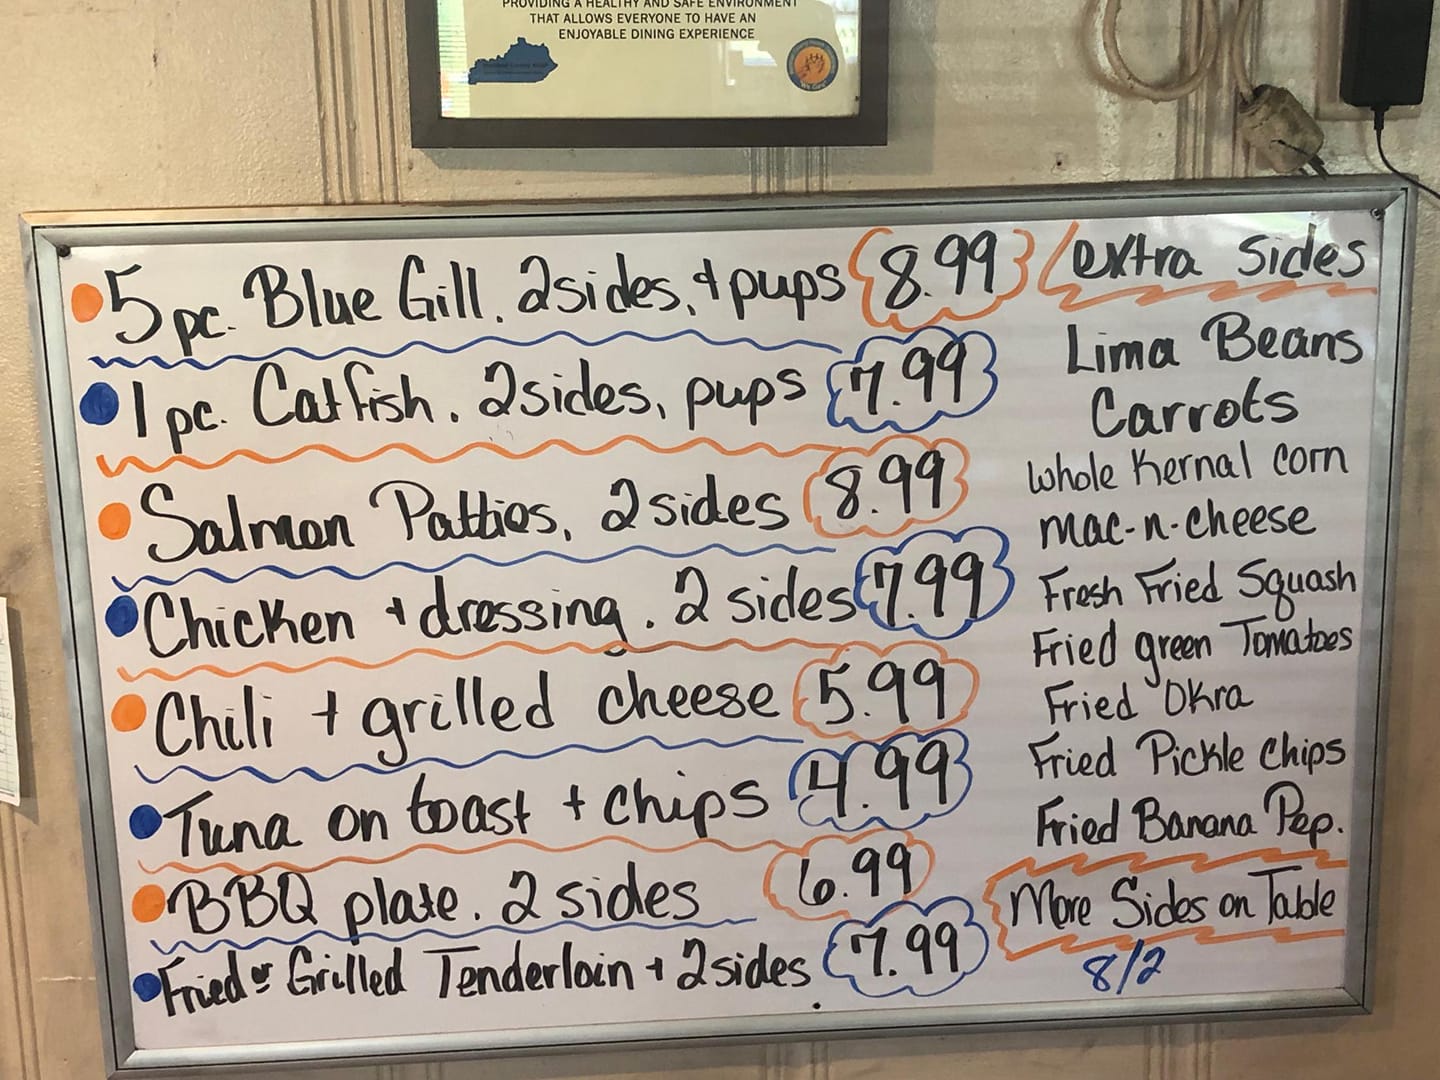 PROVIDING A HEALTHY AND SAFE ENVIRONMENT
THAT ALLOWS EVERYONE TO HAVE AN
ENJOYABLE DINING EXPERIENCE
5 pc. Blue Gill. 2 sides, + pups 8.99
1 pc. Catfish. 2 sides, pups 7.99
Salmon Patties, 2 sides 8.99
Chicken + dressing. 2 sides 7.99
Chili + grilled cheese 5.99
Tuna on toast + chips 4.99
BBQ plate. 2 sides 6.99
Fried or Grilled Tenderloin + 2 sides 7.99
extra sides
Lima Beans
Carrots
whole Kernal corn
mac-n-cheese
Fresh Fried Squash
Fried green Tomatoes
Fried Okra
Fried Pickle chips
Fried Banana Pep.
More Sides on Table
8/2